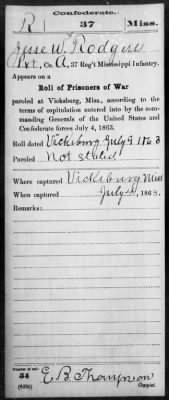 Confederate.
R 37 Miss.
Jesse W. Rodgers
Pvt, Co. A, 37 Reg't Mississippi Infantry.
Appears on a
Roll of Prisoners of War
paroled at Vicksburg, Miss., according to the
terms of capitulation entered into by the com-
manding Generals of the United States and
Confederate forces July 4, 1863.
Roll dated Vicksburg July 9 1863
Paroled Not stated
Where captured Vicksburg Miss
When captured July 4, 1863.
Remarks:
Number of roll:
54
E. B. Thompson
(639b) Copyist.